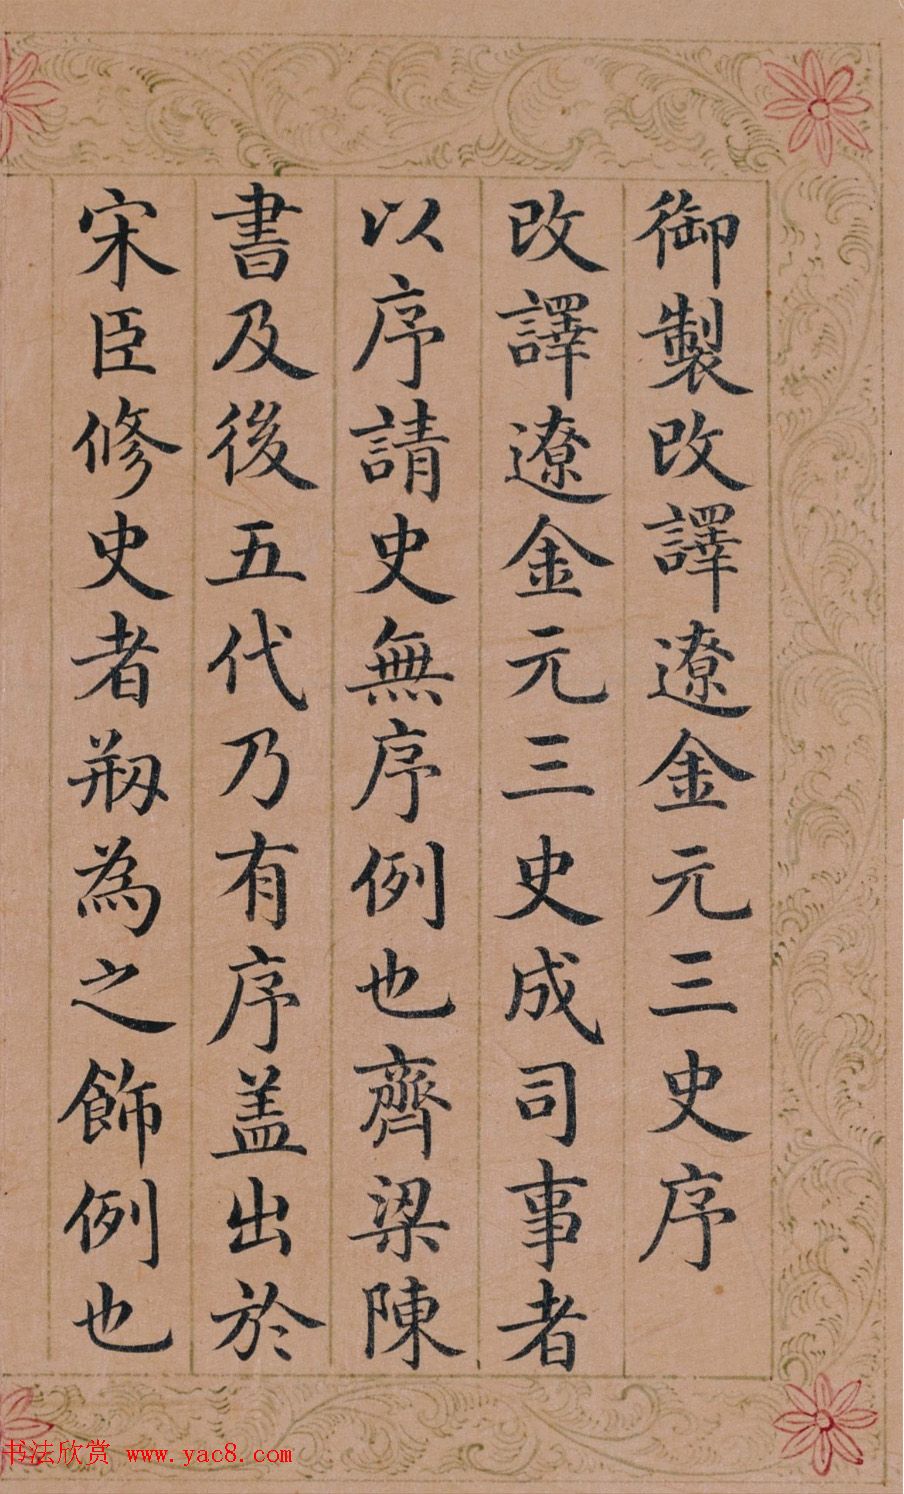 御製改譯遼金元三史序
改譯遼金元三史成司事者
以序請史無序例也齊梁陳
書及後五代乃有序盖出於
宋臣修史者剏為之飾例也
书法欣赏 www.yac8.com